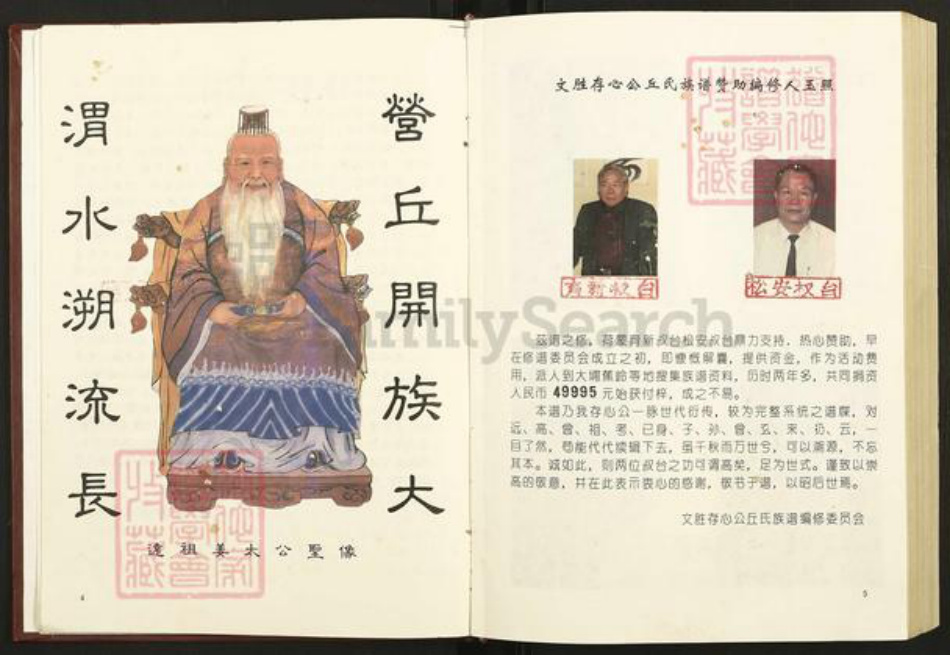 營丘開族大
渭水溯流長
遠祖姜太公聖像
4
文胜存心公丘氏族谱赞助编修人玉照
育新叔台
松安叔台
兹谱之修，荷蒙育新叔台松安叔台鼎力支持，热心赞助，早
在修谱委员会成立之初，即慷慨解囊，提供资金，作为活动费
用，派人到大埔蕉岭等地搜集族谱资料，历时两年多，共同捐资
人民币 49995 元始获付梓，成之不易。
本谱乃我存心公一脉世代衍传，较为完整系统之谱牒，对
远、高、曾、祖、考、已身、子、孙、曾、玄、来、礽、云，一
目了然，苟能代代续辑下去，虽千秋而万世兮，可以溯源，不忘
其本。诚如此，则两位叔台之功可谓高矣，足为世式。谨致以崇
高的敬意，并在此表示衷心的感谢，敬书于谱，以昭后世焉。
文胜存心公丘氏族谱编修委员会
5
FamilySearch